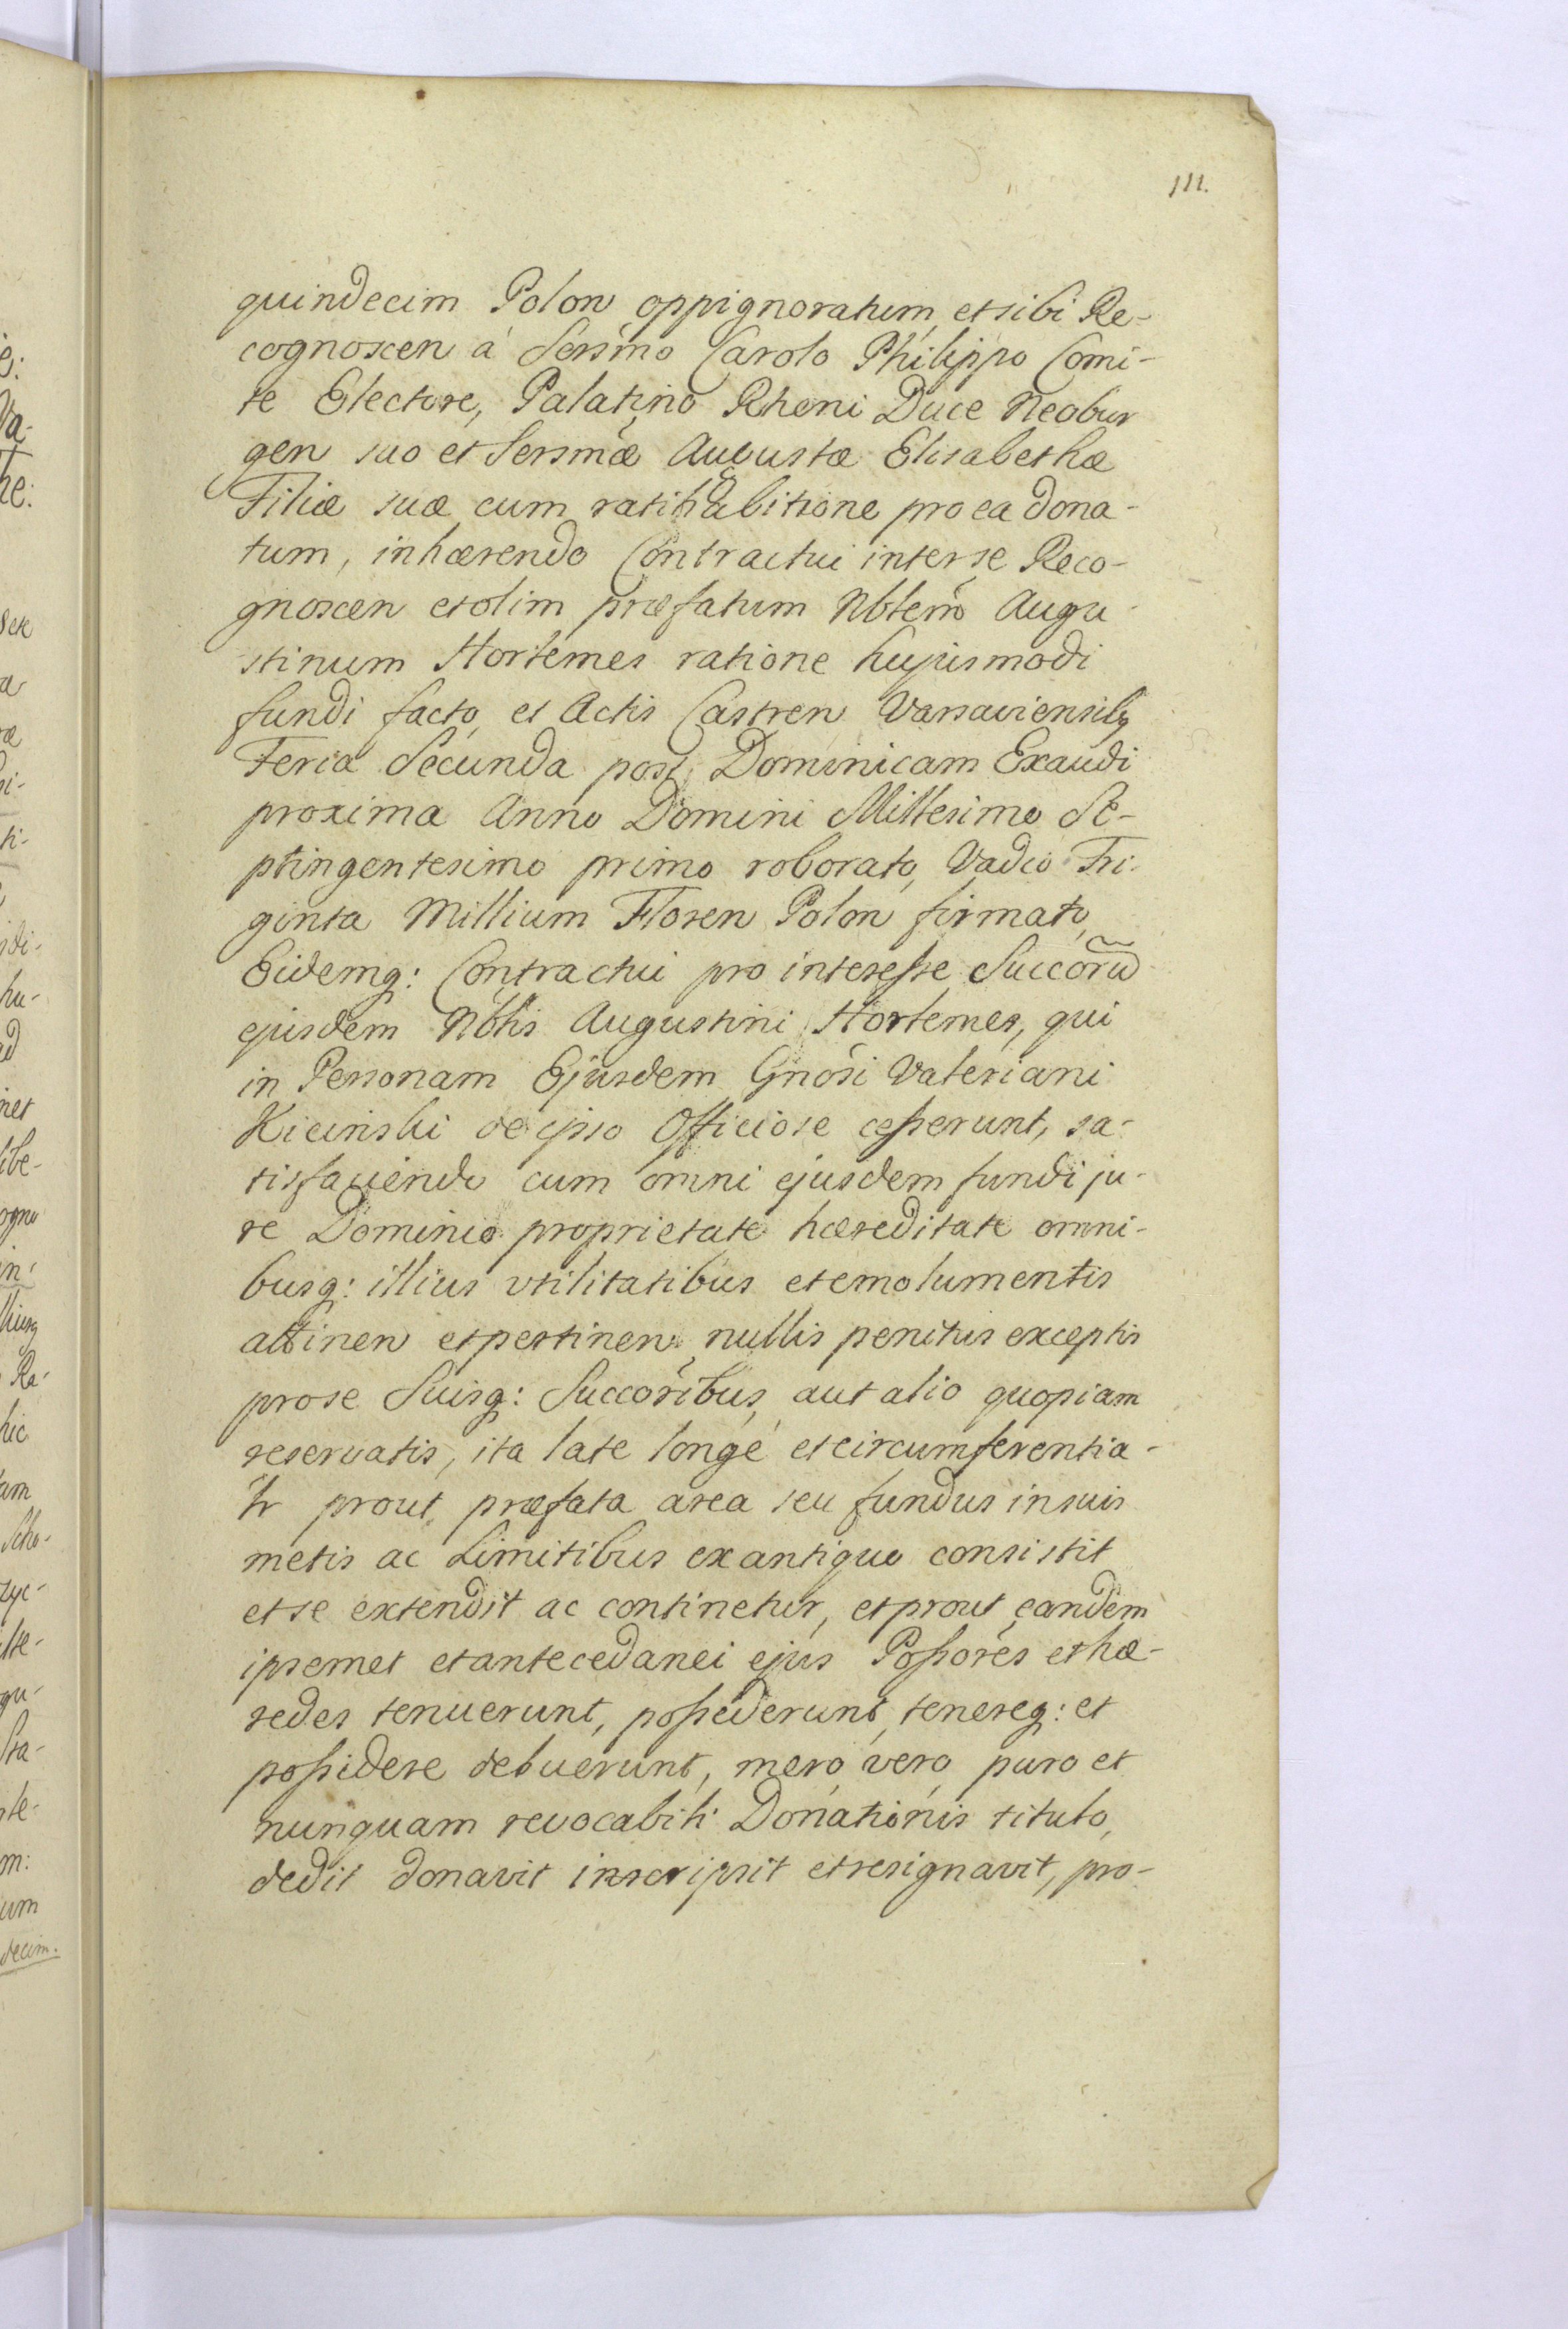 111.
quindecim Polon oppignoratum, et sibi Re-
cognoscen á Sersmo Carolo Philippo Comi-
te Electore, Palatino Rheni Duce Neobur
gen suo et Sersmæ Augustæ Elisabethæ
Filiæ suæ cum ratihabitione pro ea dona-
tum, inhærendo Contractui inter se Reco-
gnoscen et olim præfatum Nbtem Augu-
stinum Hortemes ratione hujusmodi
fundi facto, et Actis Castren Varsaviensibq
Feria Secunda post Dominicam Exaudi
proxima Anno Domini Millesimo Se-
ptingentesimo primo roborato, Vadio Tri-
ginta Millium Floren Polon firmato,
Eidemq: Contractui pro interesse Succorũ
ejusdem Nbtis Augustini Hortemes, qui
in Personam Ejusdem Gnosi Valeriani
Kicinski de ipso Officiose cesserunt, sa-
tisfaciendo cum omni ejusdem fundi ju-
re Dominio proprietate hæreditate omni-
busq: illius vtilitatibus et emolumentis
attinen et pertinen, nullis penitus exceptis
pro se Suisq: Succoribus, aut alio quopiam
reservatis, ita late longé et circumferentia-
lr prout præfata area seu fundus in suis
metis ac Limitibus ex antiquo consistit
et se extendit ac continetur, et prout eandem
ipsemet et antecedanei ejus Possores et hæ-
redes tenuerunt, possederunt, tenereq: et
possidere debuerunt, mero, vero, puro et
nunquam revocabili Donationis titulo,
dedit donavit inscripsit et resignavit, pro-